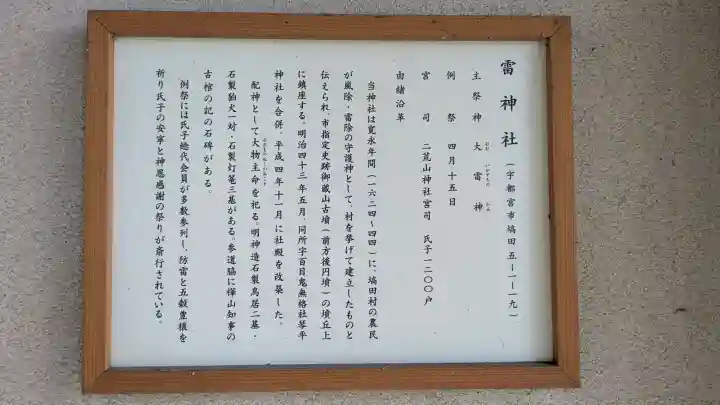 雷神社（宇都宮市塙田五ー一ー一九）
主祭神 大雷神
例祭 四月十五日
宮司 二荒山神社宮司 氏子一二〇〇戸
由緒沿革
当神社は寛永年間（一六二四ー四四）に、塙田村の農民
が風除・雷除の守護神として、村を挙げて建立したものと
伝えられ、市指定史跡御蔵山古墳（前方後円墳）の墳丘上
に鎮座する。明治四十三年五月、同所字百目鬼無格社琴平
神社を合併、平成四年十一月に社殿を改築した。
配神として大物主命を祀る。明神造石製鳥居二基・
石製狛犬一対・石製灯篭三基がある。参道脇に樺山知事の
古棺の記の石碑がある。
例祭には氏子総代会員が多数参列し、防雷と五穀豊穣を
祈り氏子の安寧と神恩感謝の祭りが斎行されている。